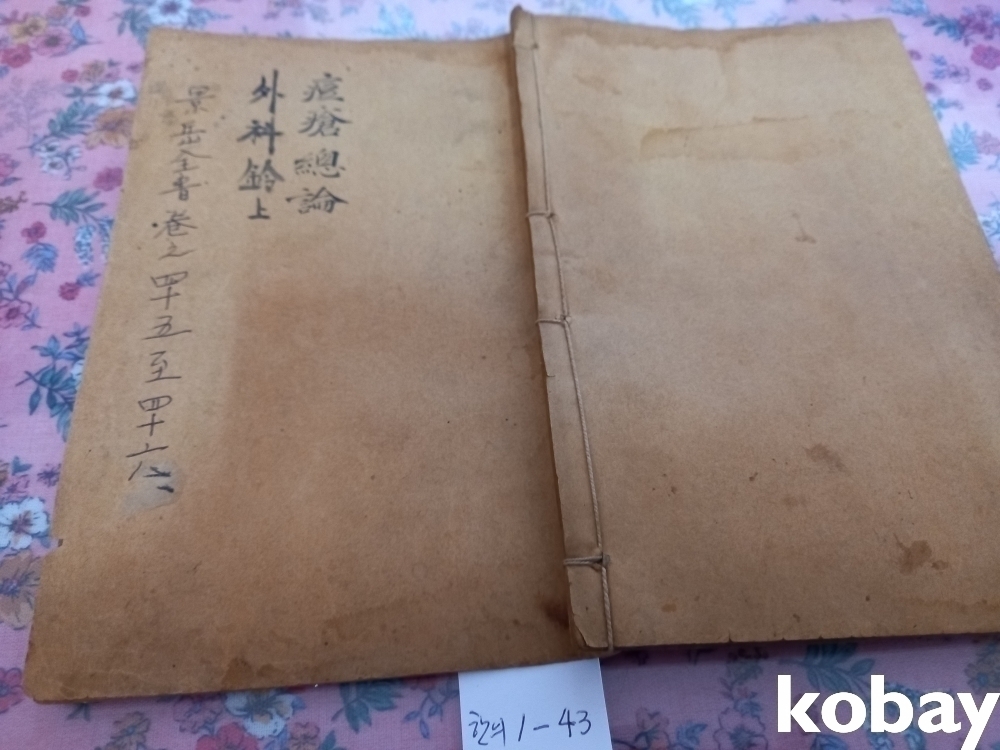 痘瘡總論
外科鈴上
景岳全書卷之四十五至四十六
한의 1-43
kobay